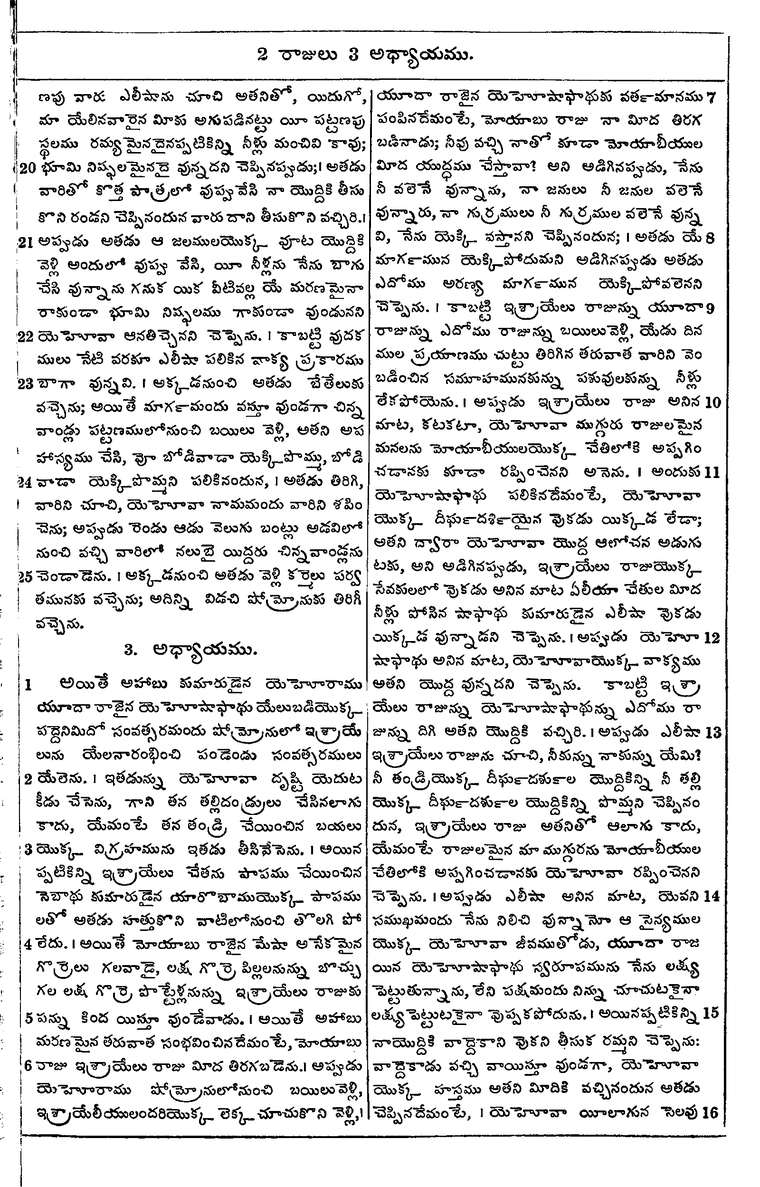 2 రాజులు 3 అధ్యాయము.
ణపు వారు ఎలీషాను చూచి అతనితో, యిదుగో,
మా యేలినవారైన మీకు అగుపడినట్టు యీ పట్టణపు
స్థలము రమ్యమైనదైనప్పటికిన్ని నీళ్లు మంచివి కావు;
20 భూమి నిష్ఫలమైనదై వున్నదని చెప్పినప్పుడు;। అతడు
వారితో కొత్త పాత్రలో వుప్పువేసి నా యొద్దికి తీసు
కొని రండని చెప్పినందున వారు దాని తీసుకొని వచ్చిరి.।
21 అప్పుడు అతడు ఆ జలములయొక్క వూట యొద్దికి
వెళ్లి అందులో వుప్పు వేసి, యీ నీళ్లను నేను బాగు
చేసి వున్నాను గనుక యిక వీటివల్ల యే మరణమైనా
రాకుండా భూమి నిష్ఫలము గాకుండా వుండునని
22 యెహోవా ఆనతిచ్చెనని చెప్పెను. । కాబట్టి వుదక
ములు నేటి వరకూ ఎలీషా పలికిన వాక్య ప్రకారము
23 బాగా వున్నవి. । అక్కడనుంచి అతడు బేతేలుకు
వచ్చెను; అయితే మార్గమందు వస్తూ వుండగా చిన్న
వాండ్లు పట్టణములోనుంచి బయిలు వెళ్లి, అతని అప
హాస్యము చేసి, వూ బోడివాడా యెక్కిపొమ్ము, బోడి
24 వాడా యెక్కిపొమ్మని పలికినందున, । అతడు తిరిగి,
వారిని చూచి, యెహోవా నామమందు వారిని శపిం
చెను; అప్పుడు రెండు ఆడు వెలుగు బంట్లు అడవిలో
నుంచి వచ్చి వారిలో నలుబై యిద్దరు చిన్నవాండ్లను
25 చెండాడెను. । అక్కడనుంచి అతడు వెళ్లి కర్మెలు పర్వ
తమునకు వచ్చెను; అదిన్ని విడచి షోమ్రోనుకు తిరిగీ
వచ్చెను.
3. అధ్యాయము.
1 అయితే అహాబు కుమారుడైన యెహోరాము
యూదా రాజైన యెహోషాఫాథు యేలుబడియొక్క
పద్దెనిమిదో సంవత్సరమందు షోమ్రోనులో ఇశ్రాయే
లును యేలనారంభించి పండెండు సంవత్సరములు
2 యేలెను. । ఇతడున్ను యెహోవా దృష్టి యెదుట
కీడు చేసెను, గాని తన తల్లిదండ్రులు చేసినలాగు
కాదు, యేమంటే తన తండ్రి చేయించిన బయలు
3 యొక్క విగ్రహమును ఇతడు తీసివేసెను. । అయిన
ప్పటికిన్ని ఇశ్రాయేలు చేతను పాపము చేయించిన
నెబాథు కుమారుడైన యారోబాముయొక్క పాపము
లతో అతడు హత్తుకొని వాటిలోనుంచి తొలగి పో
4 లేదు. । అయితే మోయాబు రాజైన మేషా అనేకమైన
గొర్రెలు గలవాడై, లక్ష గొర్రె పిల్లలనున్ను బొచ్చు
గల లక్ష గొర్రె పొట్టేళ్లనున్ను ఇశ్రాయేలు రాజుకు
5 పన్ను కింద యిస్తూ వుండేవాడు. । అయితే అహాబు
మరణమైన తరువాత సంభవించినదేమంటే, మోయాబు
6 రాజు ఇశ్రాయేలు రాజు మీద తిరగబడెను.। అప్పుడు
యెహోరాము షోమ్రోనులోనుంచి బయిలువెళ్లి,
ఇశ్రాయేలీయులందరియొక్క లెక్క చూచుకొని వెళ్లి,।
యూదా రాజైన యెహోషాఫాథుకు వర్తమానము 7
పంపినదేమంటే, మోయాబు రాజు నా మీద తిరగ
బడినాడు; నీవు వచ్చి నాతో కూడా మోయాబీయుల
మీద యుద్ధము చేస్తావా? అని అడిగినప్పుడు, నేను
నీ వలెనే వున్నాను, నా జనులు నీ జనుల వలెనే
వున్నారు, నా గుర్రములు నీ గుర్రముల వలెనే వున్న
వి, నేను యెక్కి వస్తానని చెప్పినందున; । అతడు యే 8
మార్గమున యెక్కిపోదుమని అడిగినప్పుడు అతడు
ఎదోము అరణ్య మార్గమున యెక్కిపోవలెనని
చెప్పెను. । కాబట్టి ఇశ్రాయేలు రాజున్ను యూదా 9
రాజున్ను ఎదోము రాజున్ను బయిలువెళ్లి, యేడు దిన
ముల ప్రయాణము చుట్టు తిరిగిన తరువాత వారిని వెం
బడించిన సమూహమునకున్ను పశువులకున్ను నీళ్లు
లేకపోయెను. । అప్పుడు ఇశ్రాయేలు రాజు అనిన 10
మాట, కటకటా, యెహోవా ముగ్గురు రాజులమైన
మనలను మోయాబీయులయొక్క చేతిలోకి అప్పగిం
చడానకు కూడా రప్పించెనని అనెను. । అందుకు 11
యెహోషాఫాథు పలికినదేమంటే, యెహోవా
యొక్క దీర్ఘదర్శియైన వొకడు యిక్కడ లేడా;
అతని ద్వారా యెహోవా యొద్ద ఆలోచన అడుగు
టకు, అని అడిగినప్పుడు, ఇశ్రాయేలు రాజుయొక్క
సేవకులలో వొకడు అనిన మాట ఏలీయా చేతుల మీద
నీళ్లు పోసిన షాఫాథు కుమారుడైన ఎలీషా వొకడు
యిక్కడ వున్నాడని చెప్పెను. । అప్పుడు యెహో 12
షాఫాథు అనిన మాట, యెహోవాయొక్క వాక్యము
అతని యొద్ద వున్నదని చెప్పెను. కాబట్టి ఇశ్రా
యేలు రాజున్ను యెహోషాఫాథున్ను ఎదోము రా
జున్ను దిగి అతని యొద్దికి వచ్చిరి. । అప్పుడు ఎలీషా 13
ఇశ్రాయేలు రాజును చూచి, నీకున్ను నాకున్ను యేమి?
నీ తండ్రియొక్క దీర్ఘదర్శుల యొద్దికిన్ని నీ తల్లి
యొక్క దీర్ఘదర్శుల యొద్దికిన్ని పొమ్మని చెప్పినం
దున, ఇశ్రాయేలు రాజు అతనితో ఆలాగు కాదు,
యేమంటే రాజులమైన మా ముగ్గురను మోయాబీయుల
చేతిలోకి అప్పగించడానకు యెహోవా రప్పించెనని
చెప్పెను. । అప్పుడు ఎలీషా అనిన మాట, యెవని 14
సముఖమందు నేను నిలిచి వున్నానో ఆ సైన్యముల
యొక్క యెహోవా జీవముతోడు, యూదా రాజ
యిన యెహోషాఫాథు స్వరూపమును నేను లక్ష్య
పెట్టుతున్నాను, లేని పక్షమందు నిన్ను చూచుటకైనా
లక్ష్యపెట్టుటకైనా వొప్పకపోదును. । అయినప్పటికిన్ని 15
నాయొద్దికి వాద్దెకాని వొకని తీసుక రమ్మని చెప్పెను:
వాద్దెకాడు వచ్చి వాయిస్తూ వుండగా, యెహోవా
యొక్క హస్తము అతని మీదికి వచ్చినందున అతడు
చెప్పినదేమంటే, । యెహోవా యీలాగున సెలవు 16